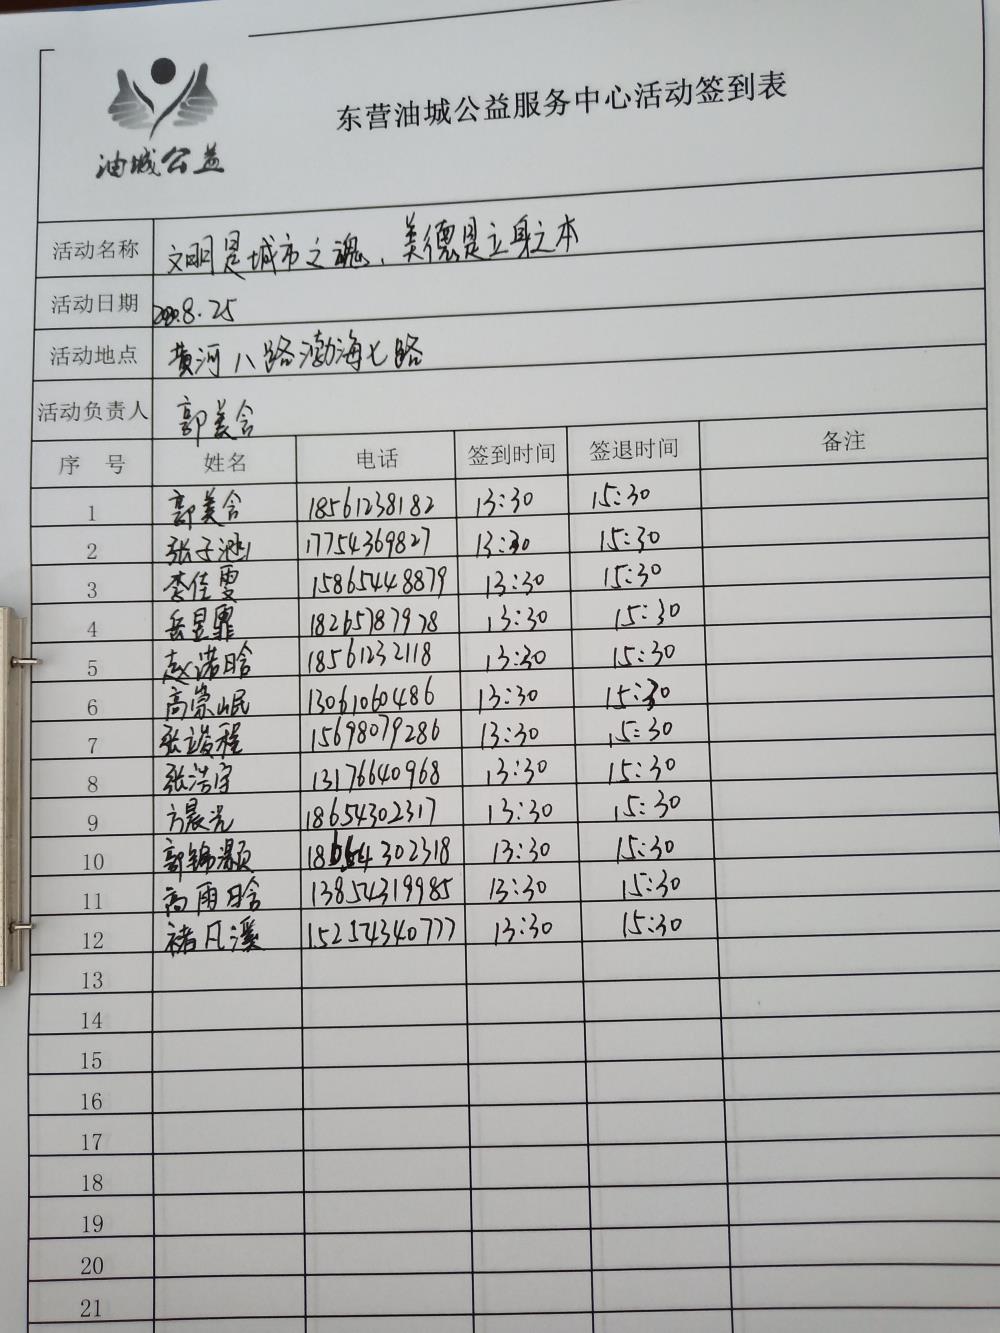 油城公益
东营油城公益服务中心活动签到表
活动名称 文明是城市之魂、美德是立身之本
活动日期 2020.8.25
活动地点 黄河八路渤海七路
活动负责人 郭美含
序 号 姓名 电话 签到时间 签退时间 备注
1 郭美含 18561238182 13:30 15:30
2 张子 17754369827 13:30 15:30
3 李佳雯 15865448879 13:30 15:30
4 岳昱霏 18265787978 13:30 15:30
5 赵诺晗 18561232118 13:30 15:30
6 高崇岷 13061060486 13:30 15:30
7 张竣程 15698079286 13:30 15:30
8 张浩宇 13176640968 13:30 15:30
9 方晨光 18654302317 13:30 15:30
10 郭锦灏 18654302318 13:30 15:30
11 高雨晗 13854319985 13:30 15:30
12 褚凡溪 15257434077 13:30 15:30
13
14
15
16
17
18
19
20
21